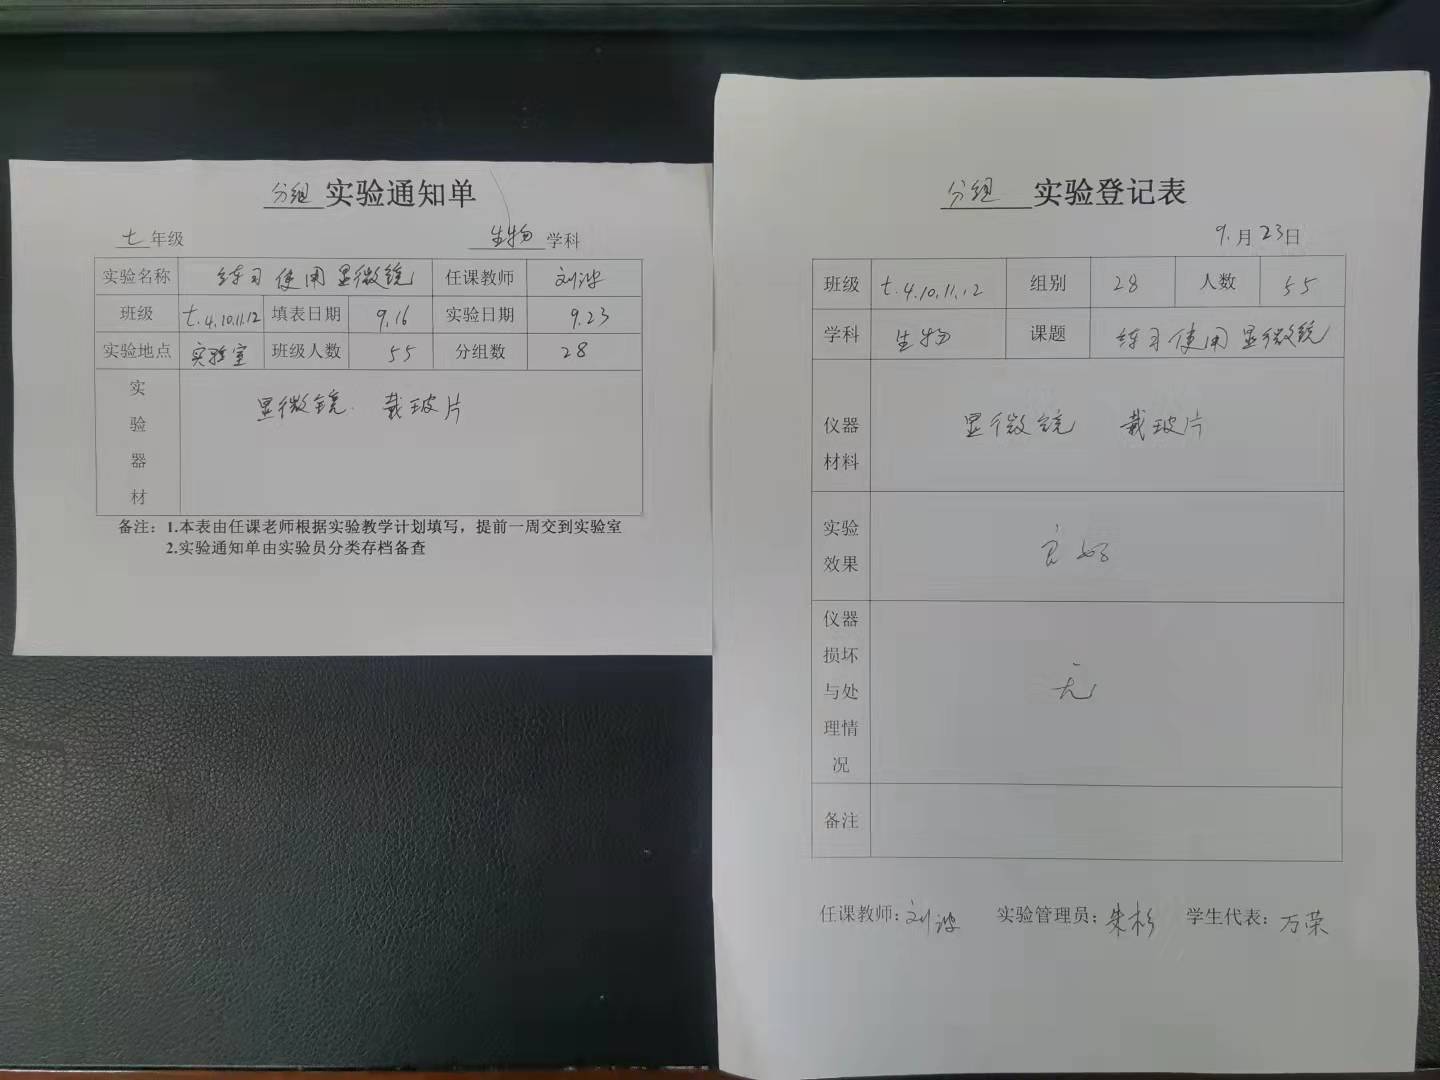 分组 实验通知单
七 年级 生物 学科
实验名称 练习使用显微镜 任课教师 刘波
班级 七.4.10.11.12 填表日期 9.16 实验日期 9.23
实验地点 实验室 班级人数 55 分组数 28
实验器材 显微镜 载玻片
备注：1.本表由任课老师根据实验教学计划填写，提前一周交到实验室
2.实验通知单由实验员分类存档备查
分组 实验登记表
9.月23日
班级 七.4.10.11.12 组别 28 人数 55
学科 生物 课题 练习使用显微镜
仪器材料 显微镜 载玻片
实验效果 良好
仪器损坏与处理情况 无
备注
任课教师：刘波 实验管理员：朱杉 学生代表：万荣